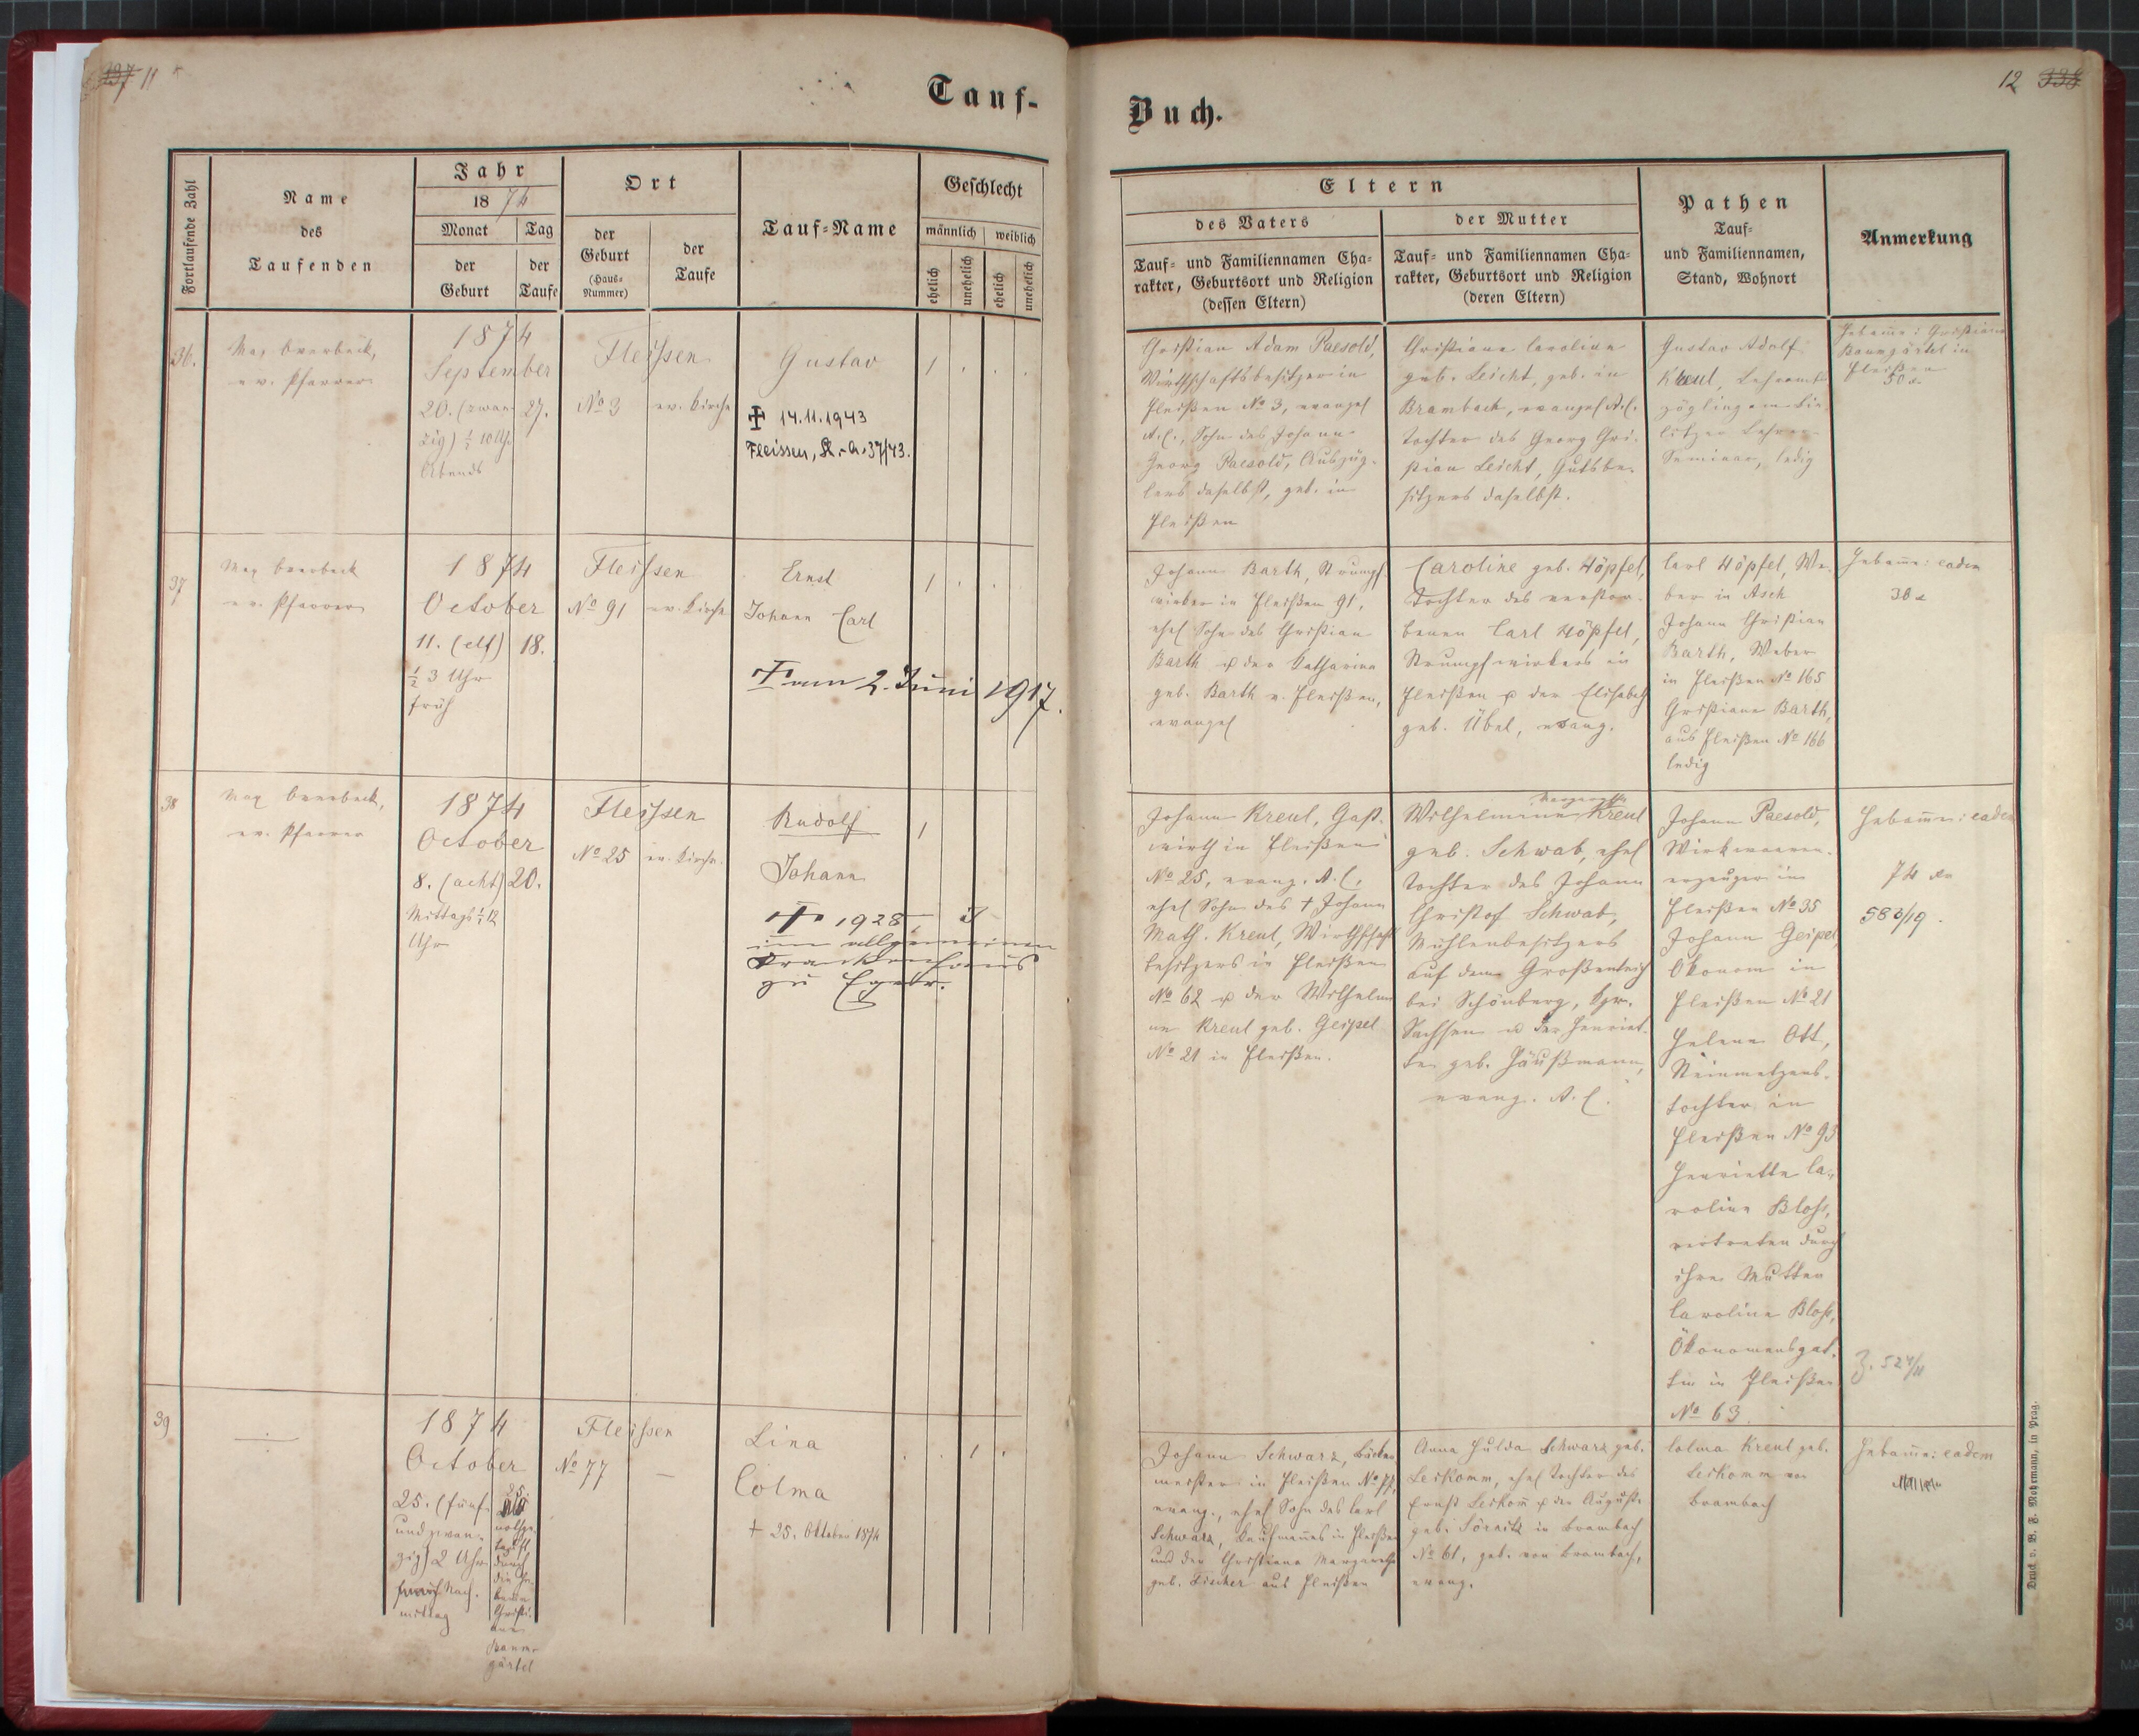 337 11
12 338
Tauf-
Buch.
Fortlaufende Zahl
Name
des
Taufenden
Jahr
1874
Monat
Tag
der
Geburt
der
Taufe
Ort
der
Geburt
(Haus-
Nummer)
der
Taufe
Tauf-Name
Geschlecht
männlich
weiblich
ehelich
unehelich
ehelich
unehelich
Eltern
des Vaters
der Mutter
Tauf- und Familiennamen Cha-
rakter, Geburtsort und Religion
(dessen Eltern)
Tauf- und Familiennamen Cha-
rakter, Geburtsort und Religion
(deren Eltern)
Pathen
Tauf-
und Familiennamen,
Stand, Wohnort
Anmerkung
36.
Max Overbeck,
ev. Pfarrer
1874
September
20. (zwan-
zig) ½ 10 Uhr
Abends
27.
Fleissen
No 3
ev. Kirche
Gustav
1
✝ 14.11.1943
Fleissen, St.-A. 37/43.
Christian Adam Paesold,
Wirthschaftsbesitzer in
Fleißen No 3, evangel
A.C., Sohn des Johann
Georg Paesold, Auszüg-
lers daselbst, geb. in
Fleißen
Christiane Caroline
geb. Leicht, geb. in
Brambach, evangel A.C.
Tochter des Georg Chri-
stian Leicht, Gutsbe-
sitzers daselbst.
Gustav Adolf
Kreul, Lehramts-
zögling am Bie-
litzer Lehrer-
Seminar, ledig
Hebame: Christiane
Baumgärtel in
Fleißen
37
Max Overbeck
ev. Pfarrer
1874
October
11. (elf)
½ 3 Uhr
früh
18.
Fleissen
No 91
ev. Kirche
Ernst
Johann Carl
1
✝ am 2. Juni 1917.
Johann Barth, Strumpf-
wirker in Fleißen 91,
ehel Sohn des Christian
Barth u der Katharina
geb. Barth v. Fleißen,
evangel
Caroline geb. Höpfel,
Tochter des verstor-
benen Carl Höpfel,
Strumpfwirkers in
Fleißen u der Elisabeth
geb. Übel, evang.
Carl Höpfel, We-
ber in Asch
Johann Christian
Barth, Weber
in Fleißen No 165
Christiane Barth,
aus Fleißen No 166
ledig
Hebame: eadem
38
Max Overbeck,
ev. Pfarrer
1874
October
8. (acht)
Mittags ½ 12
Uhr
20.
Fleissen
No 25
ev. Kirche.
Rudolf
Johann
1
✝ 1928,
im allgemeinen
Krankenhaus
zu Eger.
Johann Kreul, Gast-
wirth in Fleißen
No 25, evang. A.C.
ehel Sohn des † Johann
Math. Kreul, Wirthschafts
besitzers in Fleißen
No 62 u der Wilhelmi
ne Kreul geb. Geipel
No 21 in Fleißen.
Margarethe
Wilhelmine Kreul
geb. Schwab, ehel
Tochter des Johann
Christof Schwab,
Mühlenbesitzers
auf dem Großenteich
bei Schönberg, Kgr.
Sachsen u der Henriet-
te geb. Häußmann,
evang. A.C.
Johann Paesold,
Wirkwaaren-
erzeuger in
Fleißen No 35
Johann Geipel,
Ökonom in
Fleißen No 21
Helene Ott,
Steinmetzens-
tochter in
Fleißen No 93
Henriette Ca-
roline Bloß,
vertreten durch
ihre Mutter
Caroline Bloß,
Ökonomensgat-
tin in Fleißen
No 63
Hebamme: eadem
583/19.
Z. 524/11
39
1874
October
25. (fünf-
und zwan-
zig) 2 Uhr
Nach-
mittag
25.
nothge-
tauft
durch
die He-
bamme
Christi-
ane
Baum-
gärtel
Fleissen
No 77
—
Lina
Colma
† 25. Oktober 1874
1
Johann Schwarz, Bäcker-
meister in Fleißen No 77,
evang., ehel Sohn des Carl
Schwarz, Kaufmannes in Fleißen
und der Christiana Margarethe
geb. Fischer aus Fleißen
Anna Hulda Schwarz geb.
Leikomm, ehel Tochter des
Ernst Leikom u der Auguste
geb. in Brambach
No 61, geb. von Brambach,
evang.
Colma Kreul geb.
Leikomm von
Brambach
Hebame: eadem
Druck v. B. F. Mohrmann, in Prag.